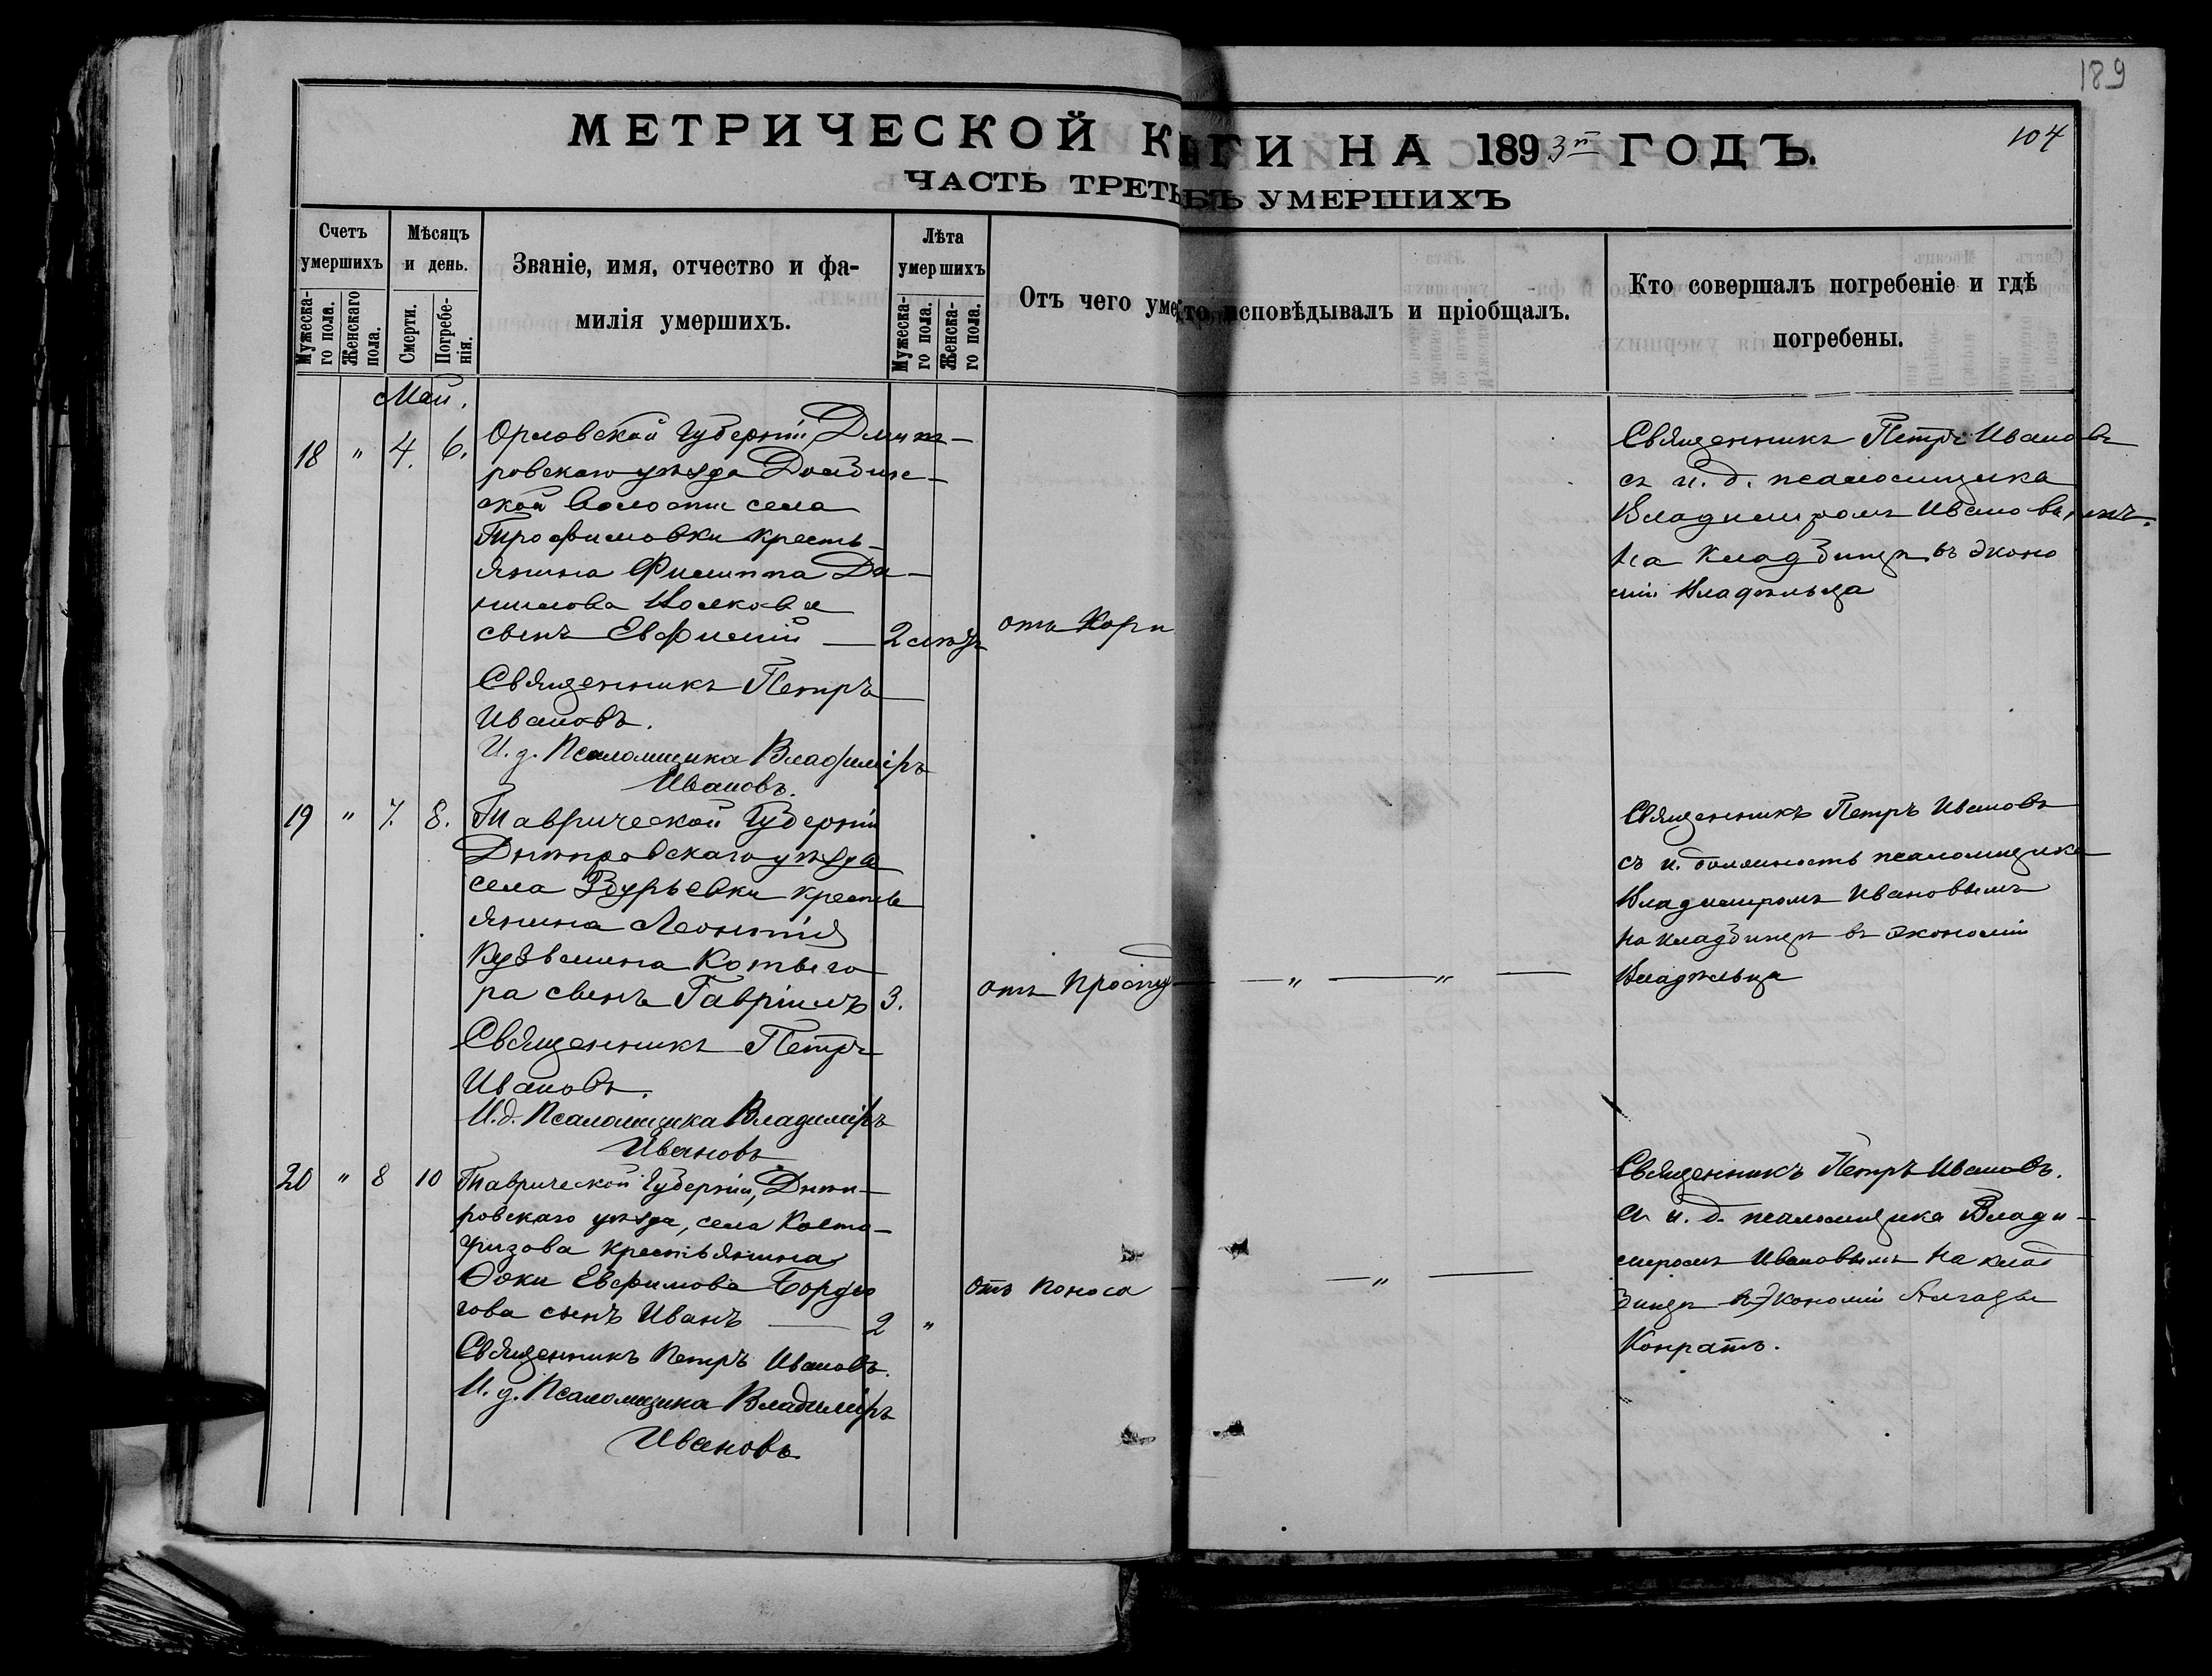 189
104
МЕТРИЧЕСКОЙ К ГИ НА 1893 ГОДЪ.
ЧАСТЬ ТРЕТЬ УМЕРШИХЪ
Счетъ умершихъ
Мужескаго пола.
Женскаго пола.
Мѣсяцъ и день.
Смерти.
Погребенія.
Званіе, имя, отчество и фа-
милія умершихъ.
Лѣта умершихъ
Мужескаго пола.
Женскаго пола.
Отъ чего уме
Кто исповѣдывалъ и пріобщалъ.
Кто совершалъ погребеніе и гдѣ
погребены.
Май.
18 " 4. 6.
Орловской Губерніи Дмит-
ровскаго уѣзда
ской Волости села
Трофимовки кресть-
янина Филиппа Да-
нилова
сынъ Евфимій — 2 лѣтъ
отъ Кори
Священникъ Петръ
Ивановъ.
И. д. Псаломщика Владиміръ
Ивановъ.
Священникъ Петръ Ивановъ
съ и. д. псаломщика
Владимиромъ Ивановымъ.
на кладбищѣ въ эконо
міи Владѣльца
19 " 7. 8.
Таврической Губерніи
Днѣпровскаго уѣзда
села Збурьевки кресть
янина Леонтія
Кузьмина Котыго
ра сынъ Гавріилъ 3.
отъ Простуд — " — " —
Священникъ Петръ
Ивановъ.
И. д. Псаломщика Владиміръ
Ивановъ
Священникъ Петръ Ивановъ
съ и. должность псаломщика
Владимиромъ Ивановымъ
на кладбищѣ въ экономіи
Владѣльца
20 " 8 10
Таврической Губерніи, Днѣп-
ровскаго уѣзда, села Косто-
гризова крестьянина
Ѳоки Евфимова Бордю
гова сынъ Иванъ — 2 "
отъ поноса — " —
Священникъ Петръ Ивановъ.
И. д. Псаломщика Владиміръ
Ивановъ
Священникъ Петръ Ивановъ.
съ и. д. псаломщика Влади-
миромъ Ивановымъ на клад
бищѣ въ Экономіи
Конратъ.